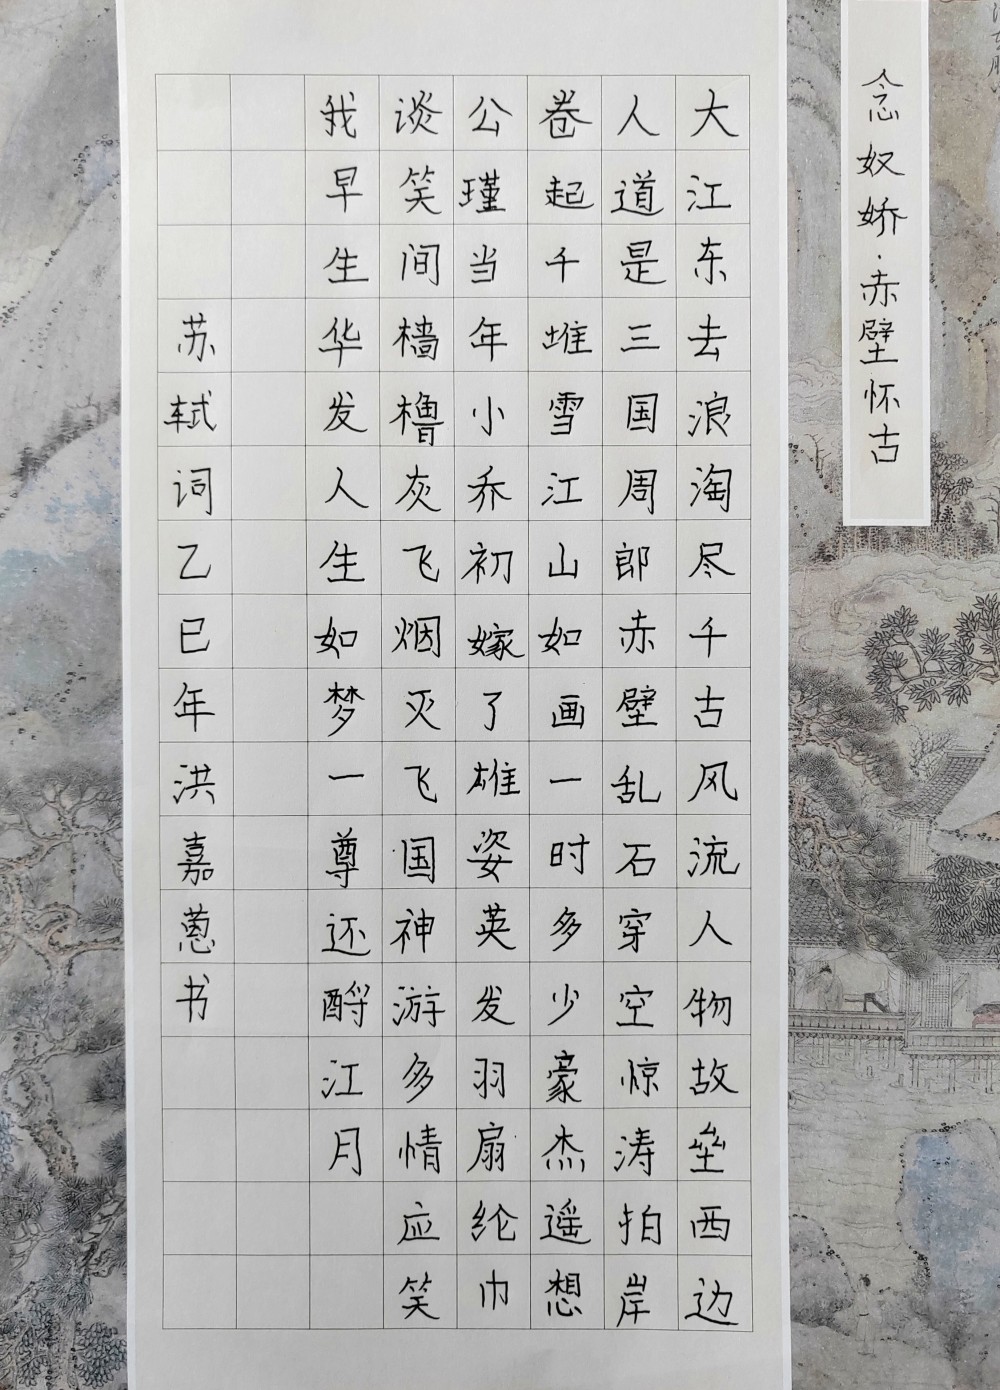 念奴娇·赤壁怀古
大江东去浪淘尽千古风流人物故垒西边
人道是三国周郎赤壁乱石穿空惊涛拍岸
卷起千堆雪江山如画一时多少豪杰遥想
公瑾当年小乔初嫁了雄姿英发羽扇纶巾
谈笑间樯橹灰飞烟灭飞国神游多情应笑
我早生华发人生如梦一尊还酹江月
苏轼词乙巳年洪嘉蒽书